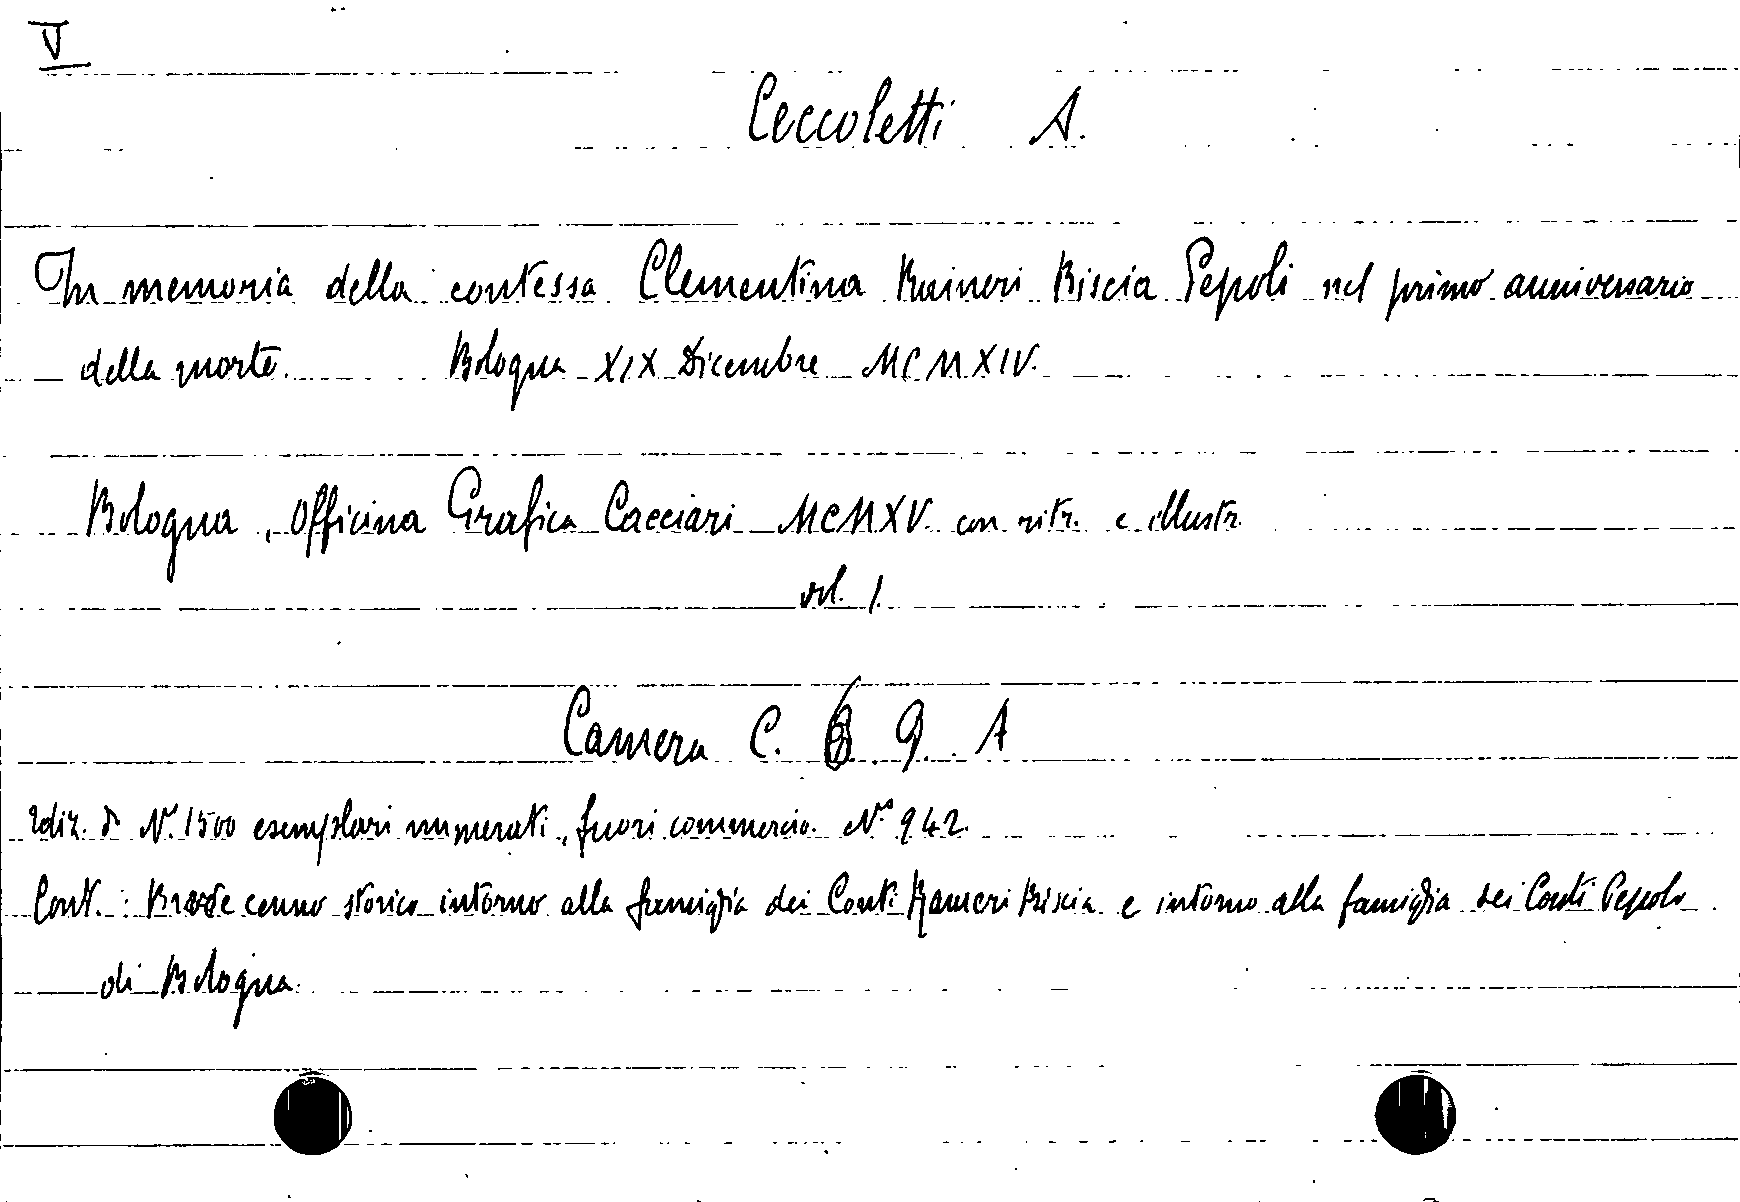 V
Ceccoletti A.
In memoria della contessa Clementina Raineri Biscia Pepoli nel primo anniversario
della morte. Bologna XIX Dicembre MCMXIV.
Bologna, Officina Grafica Cacciari MCMXV. con ritr. e illustr.
vol. 1.
Camera C. 9. A
Ediz. di N. 1500 esemplari numerati, fuori commercio. N° 942.
Cont.: Breve cenno storico intorno alla famiglia dei Conti Raineri Biscia e intorno alla famiglia dei Conti Pepoli
di Bologna.